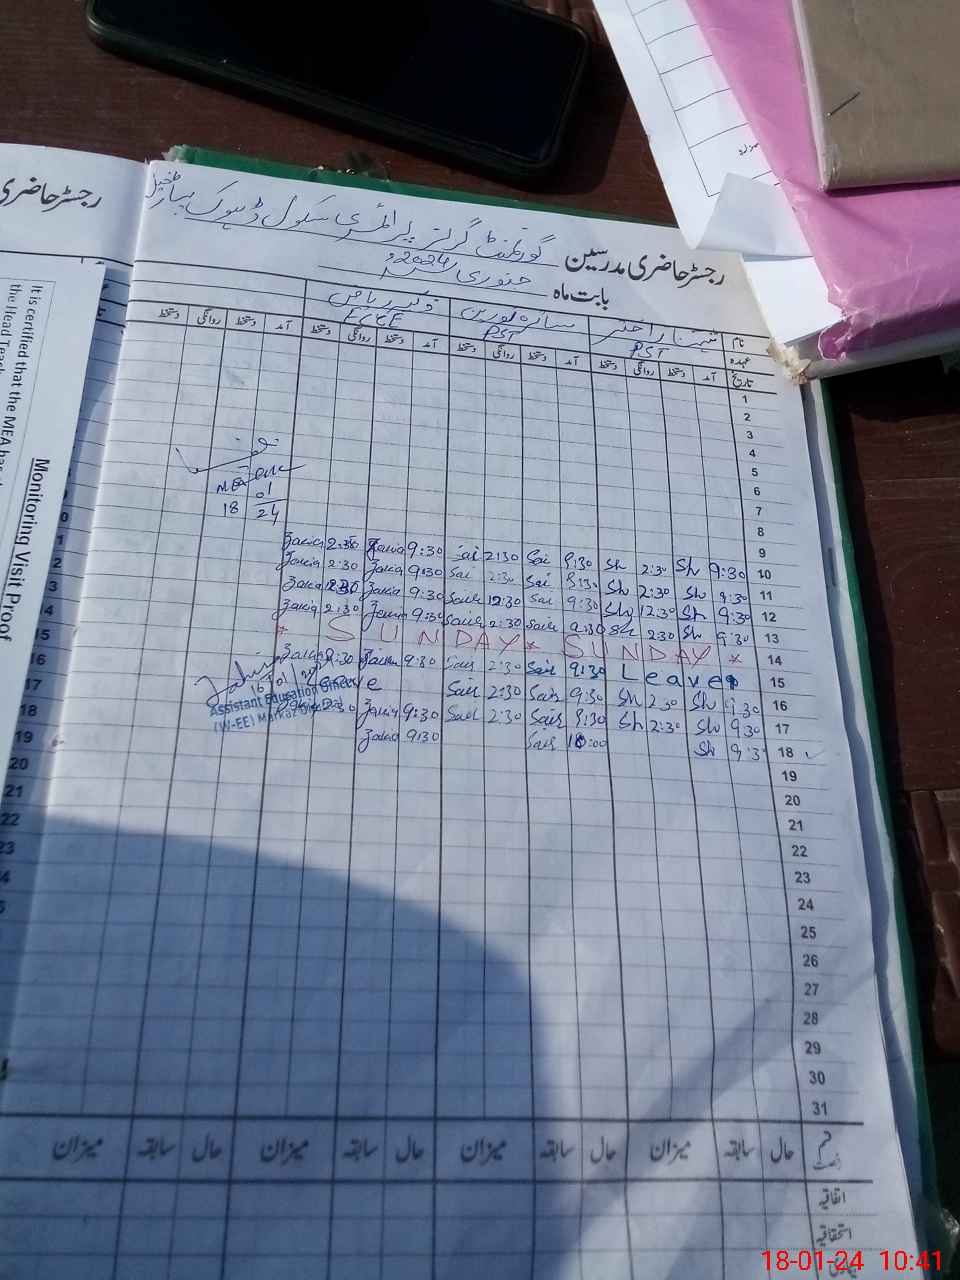 رجسٹر حاضری مدرسین گورنمنٹ گرلز پرائمری سکول ڈہوک
رجسٹر حاضری
بابت ماہ جنوری 2024ء
نام
عہدہ PST PST ECCE
تاریخ آمد دستخط روانگی دستخط آمد دستخط روانگی دستخط آمد دستخط روانگی دستخط آمد دستخط روانگی دستخط
1
2
3
4
5
6
7
8
9
10 9:30 Sh 2:30 Sh 9:30 Sai 2:30 Sai 9:30 Zakia 2:30 Zakia
11 9:30 Sh 2:30 Sh 9:30 Sai 2:30 Sai 9:30 Zakia 2:30 Zakia
12 9:30 Sh 12:30 Sh 9:30 Sai 12:30 Sair 9:30 Zakia 12:30 Zakia
13 9:30 Sh 2:30 Sh 9:30 Sair 2:30 Sair 9:30 Zakia 2:30 Zakia
14 * SUNDAY * SUNDAY *
15 Leave 9:30 Sair 2:30 Sair 9:30 Zakia 2:30 Zakia
16 9:30 Sh 2:30 Sh 9:30 Sair 2:30 Sair Leave
17 9:30 Sh 2:30 Sh 9:30 Sair 2:30 Sair 9:30 Zakia 2:30
18 9:3 Sh 10:00 Sair 9:30 Zakia
19
20
21
22
23
24
25
26
27
28
29
30
31
MEA
01
18 24
16
Assistant Education Officer
(W-EE) Markaz
حال سابقہ میزان حال سابقہ میزان حال سابقہ میزان حال سابقہ میزان
اتفاقیہ
استحقاقیہ
It is certified that the MEA has
the Head Teach
Monitoring Visit Proof
18-01-24 10:41